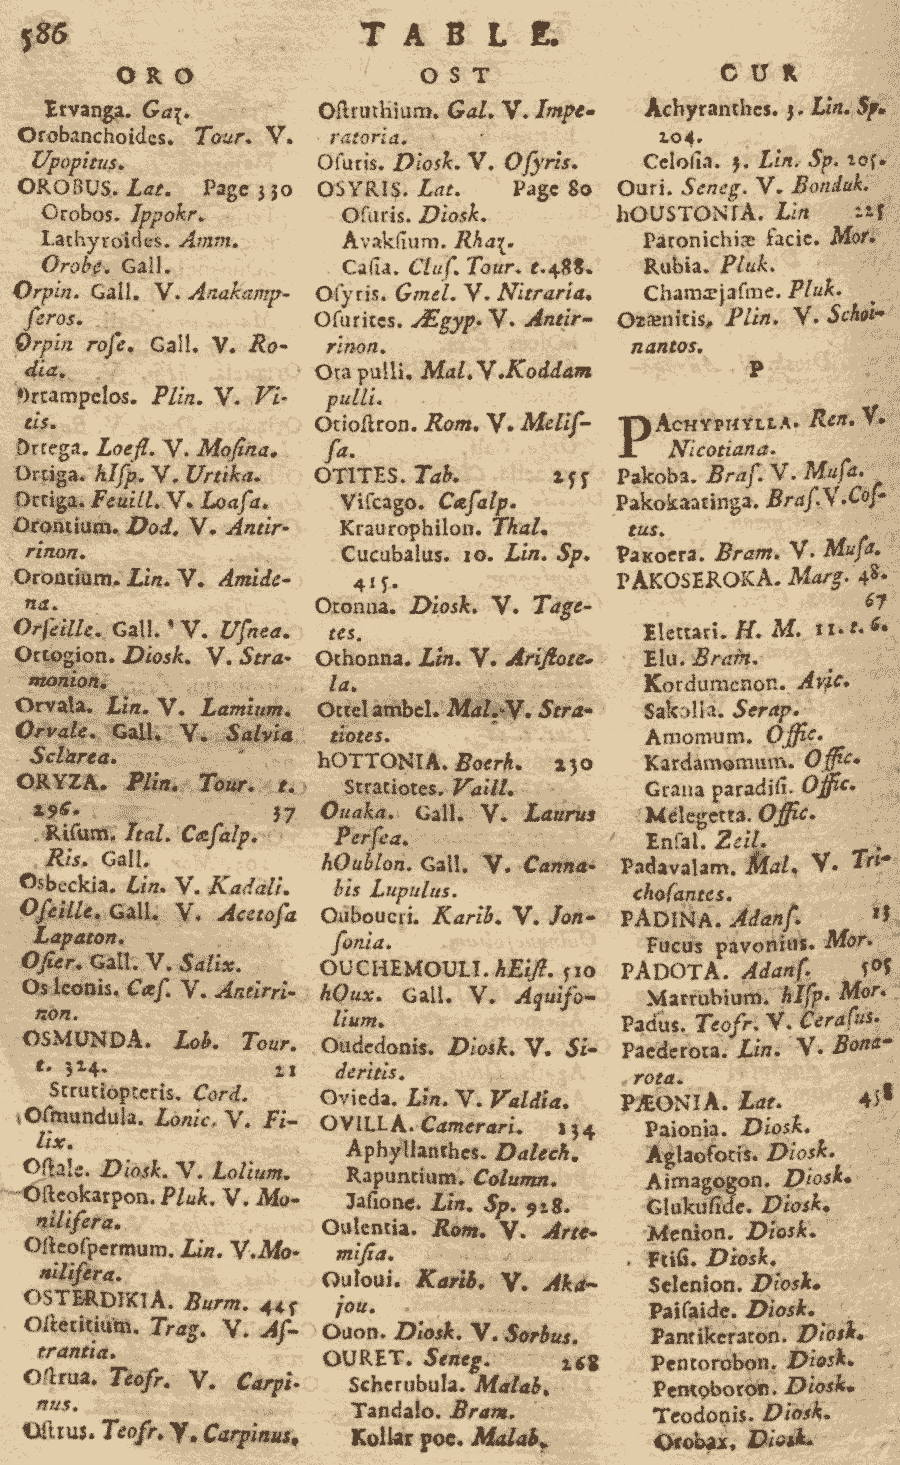 586
TABLE.
ORO
Ervanga. Gaz.
Orobanchoides. Tour. V.
Upopitus.
OROBUS. Lat. Page 330
Orobos. Ippokr.
Lathyroides. Amm.
Orobe. Gall.
Orpin. Gall. V. Anakamp-
seros.
Orpin rose. Gall. V. Ro-
dia.
Ortampelos. Plin. V. Vi-
tis.
Ortega. Loefl. V. Mosina.
Ortiga. hIsp. V. Urtika.
Ortiga. Feuill. V. Loasa.
Orontium. Dod. V. Antir-
rinon.
Orontium. Lin. V. Amide-
na.
Orseille. Gall. V. Usnea.
Ortogion. Diosk. V. Stra-
monion.
Orvala. Lin. V. Lamium.
Orvale. Gall. V. Salvia
Sclarea.
ORYZA. Plin. Tour. t.
296. 37
Risum. Ital. Cæsalp.
Ris. Gall.
Osbeckia. Lin. V. Kadali.
Oseille. Gall. V. Acetosa
Lapaton.
Osier. Gall. V. Salix.
Os leonis. Cæs. V. Antirri-
non.
OSMUNDA. Lob. Tour.
t. 324. 21
Strutiopteris. Cord.
Osmundula. Lonic. V. Fi-
lix.
Ostale. Diosk. V. Lolium.
Osteokarpon. Pluk. V. Mo-
nilifera.
Osteospermum. Lin. V. Mo-
nilifera.
OSTERDIKIA. Burm. 445
Osteritium. Trag. V. As-
trantia.
Ostrua. Teofr. V. Carpi-
nus.
Ostrus. Teofr. V. Carpinus.
OST
Ostruthium. Gal. V. Impe-
ratoria.
Osuris. Diosk. V. Osyris.
OSYRIS. Lat. Page 80
Osuris. Diosk.
Avaksium. Rhaz.
Casia. Clus. Tour. t. 488.
Osyris. Gmel. V. Nitraria.
Osurites. Ægyp. V. Antir-
rinon.
Ota pulli. Mal. V. Koddam
pulli.
Otiostron. Rom. V. Melis-
sa.
OTITES. Tab. 255
Viscago. Cæsalp.
Kraurophilon. Thal.
Cucubalus. 10. Lin. Sp.
415.
Otonna. Diosk. V. Tage-
tes.
Othonna. Lin. V. Aristote-
la.
Ottel ambel. Mal. V. Stra-
tiotes.
hOTTONIA. Boerh. 230
Stratiotes. Vaill.
Ouaka. Gall. V. Laurus
Persea.
hOublon. Gall. V. Canna-
bis Lupulus.
Ouboueri. Karib. V. Jon-
sonia.
OUCHEMOULI. hEist. 510
hOux. Gall. V. Aquifo-
lium.
Oudedonis. Diosk. V. Si-
deritis.
Ovieda. Lin. V. Valdia.
OVILLA. Camerari. 134
Aphyllanthes. Dalech.
Rapuntium. Column.
Jasione. Lin. Sp. 928.
Oulentia. Rom. V. Arte-
misia.
Ouloui. Karib. V. Aka-
jou.
Ouon. Diosk. V. Sorbus.
OURET. Seneg. 268
Scherubula. Malab.
Tandalo. Bram.
Kollar poe. Malab.
CUR
Achyranthes. 3. Lin. Sp.
204.
Celosia. 3. Lin. Sp. 205.
Ouri. Seneg. V. Bonduk.
hOUSTONIA. Lin 225
Paronichiæ facie. Mor.
Rubia. Pluk.
Chamæjasme. Pluk.
Ozænitis. Plin. V. Schoi-
nantos.
P
PACHYPHYLLA. Ren. V.
Nicotiana.
Pakoba. Bras. V. Musa.
Pakokaatinga. Bras. V. Cos-
tus.
Pakoera. Bram. V. Musa.
PAKOSEROKA. Marg. 48.
67
Elettari. H. M. 11. t. 6.
Elu. Bram.
Kordumenon. Avic.
Sakolla. Serap.
Amomum. Offic.
Kardamomum. Offic.
Grana paradisi. Offic.
Melegetta. Offic.
Ensal. Zeil.
Padavalam. Mal. V. Tri-
chosantes.
PADINA. Adans. 13
Fucus pavonius. Mor.
PADOTA. Adans. 505
Marrubium. hIsp. Mor.
Padus. Teofr. V. Cerasus.
Paederota. Lin. V. Bona-
rota.
PÆONIA. Lat. 458
Paionia. Diosk.
Aglaofotis. Diosk.
Aimagogon. Diosk.
Glukuside. Diosk.
Menion. Diosk.
Ftisi. Diosk.
Selenion. Diosk.
Paisaide. Diosk.
Pantikeraton. Diosk.
Pentorobon. Diosk.
Pentoboron. Diosk.
Teodonis. Diosk.
Orobax. Diosk.